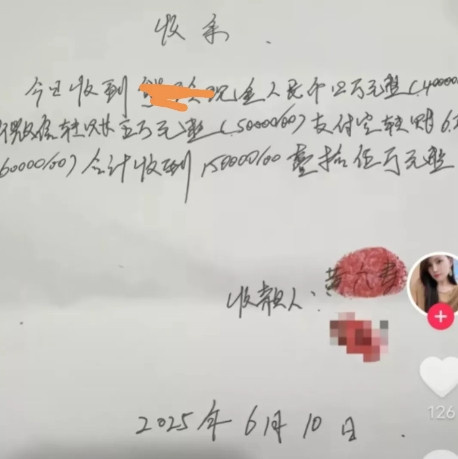 收条.
今日收到 现金人民币四万元整(40000
微信转账五万元整(50000/00)支付宝转账6
60000/00)合计收到150000/00壹拾伍万元整
收款人:黄
2025年6月10日
126